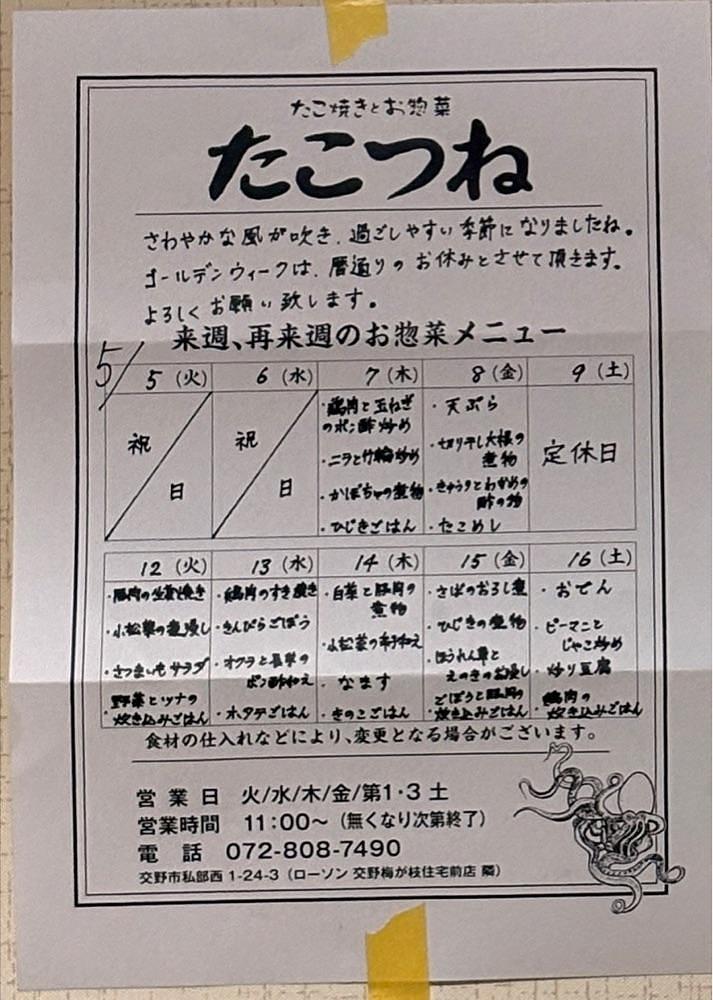 たこ焼きとお惣菜
たこつね
さわやかな風が吹き、過ごしやすい季節になりましたね。
ゴールデンウィークは、暦通りのお休みとさせて頂きます。
よろしくお願い致します。
来週、再来週のお惣菜メニュー
5/
5 (火) 6 (水) 7 (木) 8 (金) 9 (土)
祝日
祝日
・鶏肉と玉ねぎ
のポン酢炒め
・ニラと竹輪炒め
・かぼちゃの煮物
・ひじきごはん
・天ぷら
・切り干し大根の
煮物
・きゅうりとわかめの
酢の物
・たこめし
定休日
12 (火) 13 (水) 14 (木) 15 (金) 16 (土)
・豚肉の生姜焼き
・小松菜の煮浸し
・さつまいもサラダ
野菜とツナの
・炊き込みごはん
・鶏肉のすき焼き
・きんぴらごぼう
・オクラと長芋の
ポン酢和え
・ホタテごはん
・白菜と豚肉の
煮物
・小松菜の和え
・なます
・きのこごはん
・さばのおろし煮
・ひじきの煮物
・ほうれん草と
えのきのお浸し
ごぼうと豚肉の
・炊き込みごはん
・おでん
・ピーマンと
じゃこ炒め
・炒り豆腐
鶏肉の
・炊き込みごはん
食材の仕入れなどにより、変更となる場合がございます。
営業日 火/水/木/金/第1・3 土
営業時間 11:00～（無くなり次第終了）
電話 072-808-7490
交野市私部西 1-24-3（ローソン 交野梅が枝住宅前店 隣）